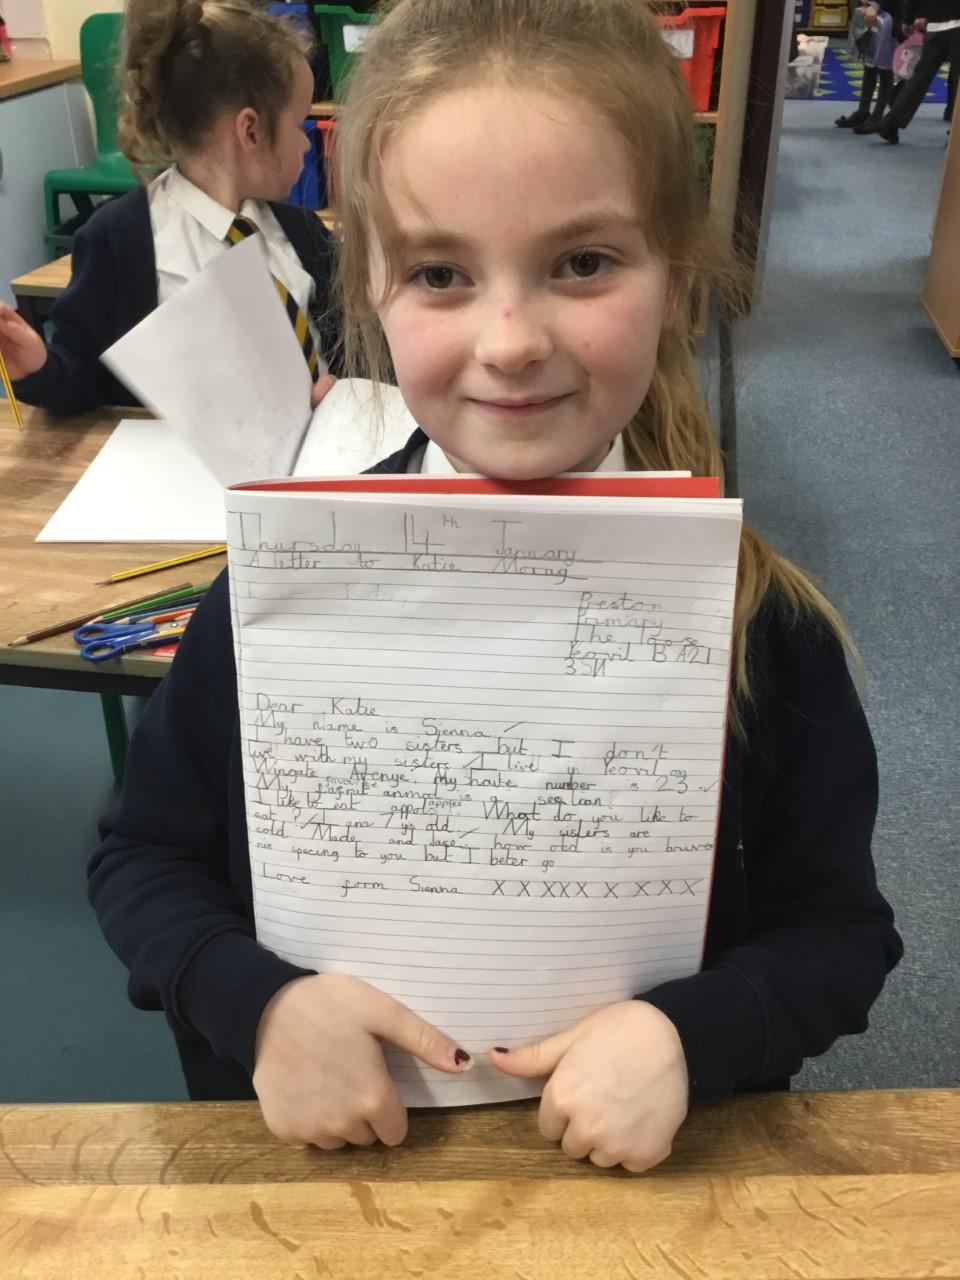 Thursday 14th January
A letter to Katie Morag
Preston
Primary
The
Yeovil BA21
3SN
Dear Katie
My name is Sienna
I have two sisters but I don't
live with my sisters I live in Yeovil on
Wingate Avenye. my house number is 23
My favourite anmal is a
I like to eat apples What do you like to
eat? I am 7 yrs old. My sisters are
cold Made and how old is you
nis specing to you but I beter go
Love form Sienna X X X X X X X X X